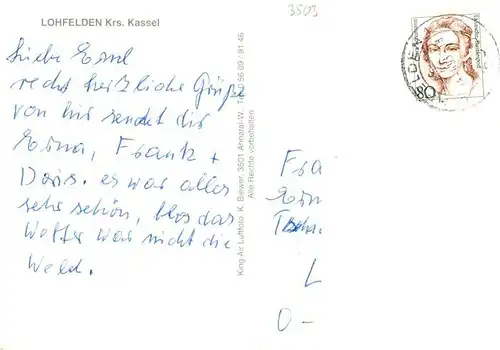 LOHFELDEN Krs. Kassel
3503
Liebe
recht herzliche Grüße
von hir sendet dir
Erna, Frank +
Doris. es war alles
sehr schön, blos das
Wetter war nicht die
Welt.
King Air Luftfoto K. Biewer, 3501 Ahnatal-W. Tel. 0 56 09 / 91 46
Alle Rechte vorbehalten
80
LDEN
Fra
L
O-